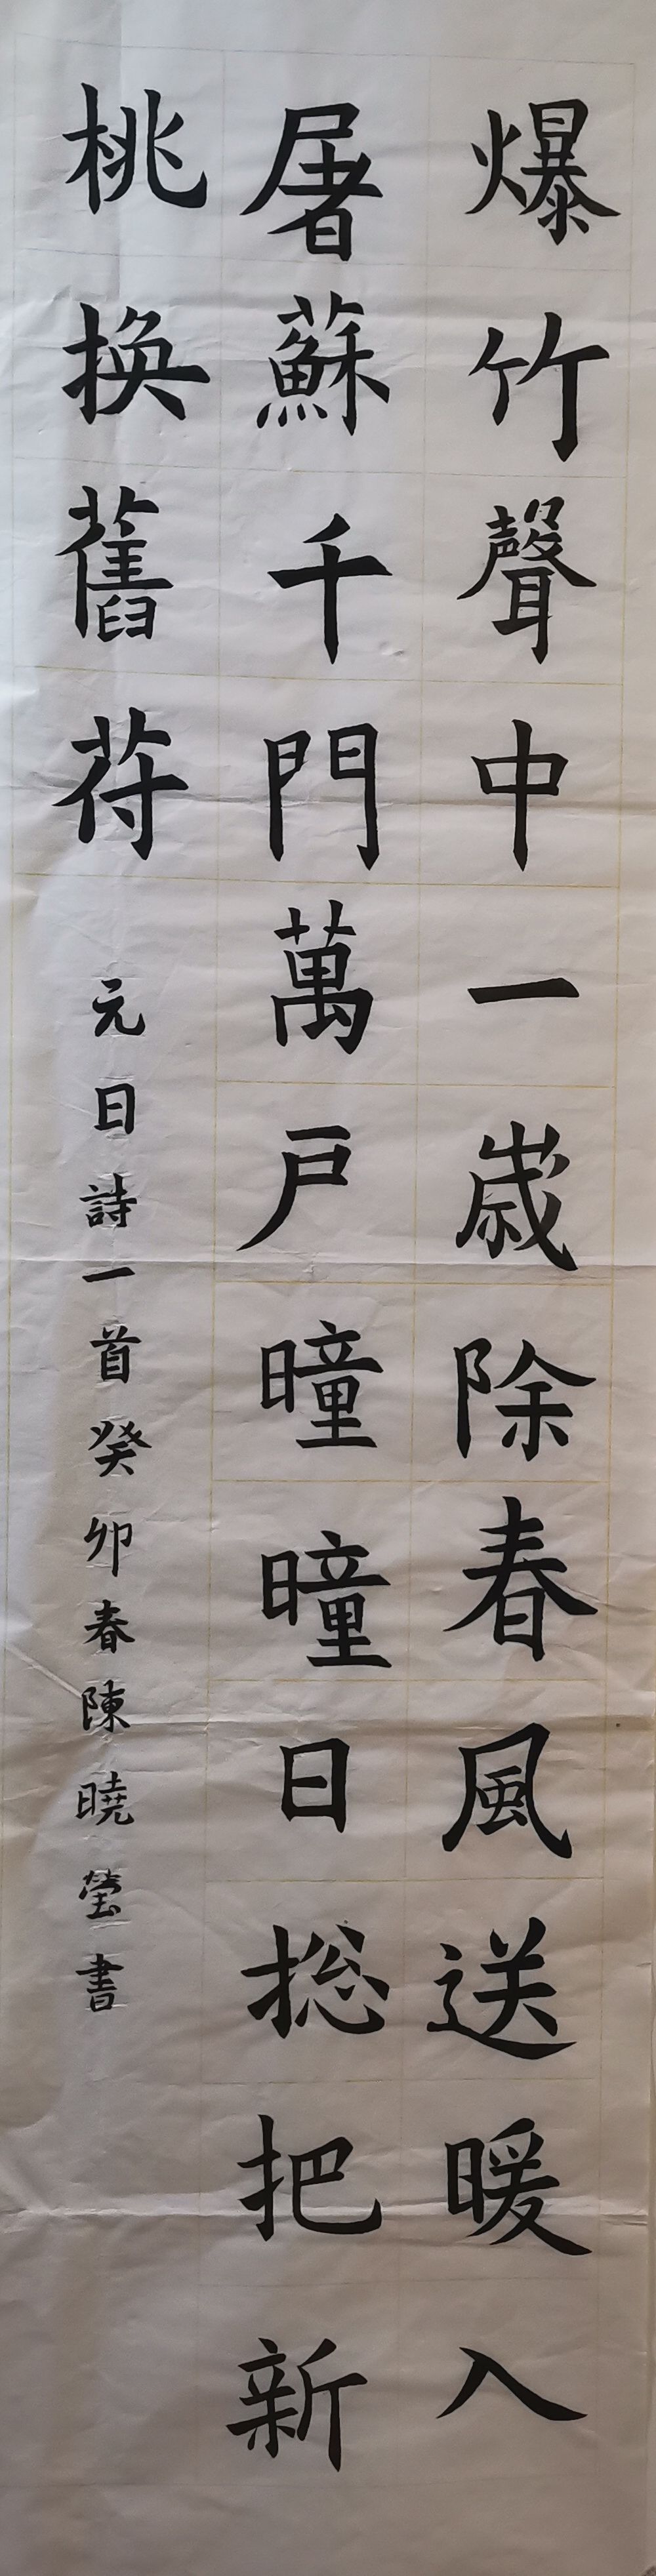 爆竹聲中一歲除春風送暖入
屠蘇千門萬戶曈曈日捴把新
桃換舊苻
元日詩一首癸卯春陳曉瑩書